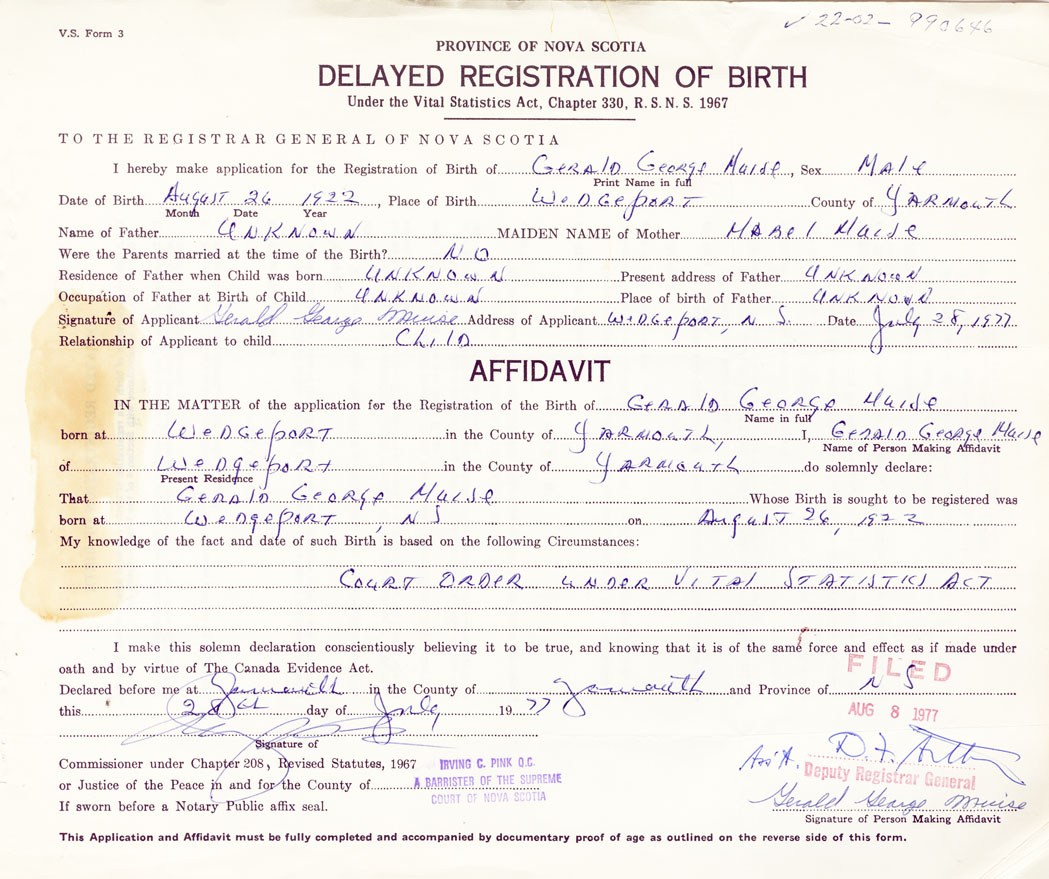 ✓ 22-02- 990646
V.S. Form 3
PROVINCE OF NOVA SCOTIA
DELAYED REGISTRATION OF BIRTH
Under the Vital Statistics Act, Chapter 330, R. S. N. S. 1967
TO THE REGISTRAR GENERAL OF NOVA SCOTIA
I hereby make application for the Registration of Birth of GERALD GEORGE MUISE, Sex MALE
Print Name in full
Date of Birth AUGUST 26 1922, Place of Birth WEDGEPORT County of YARMOUTH
Month Date Year
Name of Father UNKNOWN MAIDEN NAME of Mother MABEL MUISE
Were the Parents married at the time of the Birth? NO
Residence of Father when Child was born UNKNOWN Present address of Father UNKNOWN
Occupation of Father at Birth of Child UNKNOWN Place of birth of Father UNKNOWN
Signature of Applicant Gerald George Muise Address of Applicant WEDGEPORT, N S. Date July 28, 1977
Relationship of Applicant to child CHILD
AFFIDAVIT
IN THE MATTER of the application for the Registration of the Birth of GERALD GEORGE MUISE
Name in full
born at WEDGEPORT in the County of YARMOUTH, I, GERALD GEORGE MUISE
Name of Person Making Affidavit
of WEDGEPORT in the County of YARMOUTH do solemnly declare:
Present Residence
That GERALD GEORGE MUISE Whose Birth is sought to be registered was
born at WEDGEPORT, N S on AUGUST 26, 1922
My knowledge of the fact and date of such Birth is based on the following Circumstances:
COURT ORDER UNDER VITAL STATISTICS ACT
I make this solemn declaration conscientiously believing it to be true, and knowing that it is of the same force and effect as if made under
oath and by virtue of The Canada Evidence Act.
FILED
Declared before me at Yarmouth in the County of Yarmouth and Province of N S
this 28th day of July 1977
AUG 8 1977
Signature of
Commissioner under Chapter 208, Revised Statutes, 1967 IRVING C. PINK Q.C.
Ass't. D. F.
Deputy Registrar General
or Justice of the Peace in and for the County of A BARRISTER OF THE SUPREME
COURT OF NOVA SCOTIA
Gerald George Muise
If sworn before a Notary Public affix seal.
Signature of Person Making Affidavit
This Application and Affidavit must be fully completed and accompanied by documentary proof of age as outlined on the reverse side of this form.